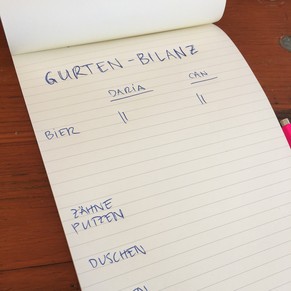 GURTEN-BILANZ
DARIA CAN
BIER || ||
ZÄHNE
PUTZEN
DUSCHEN